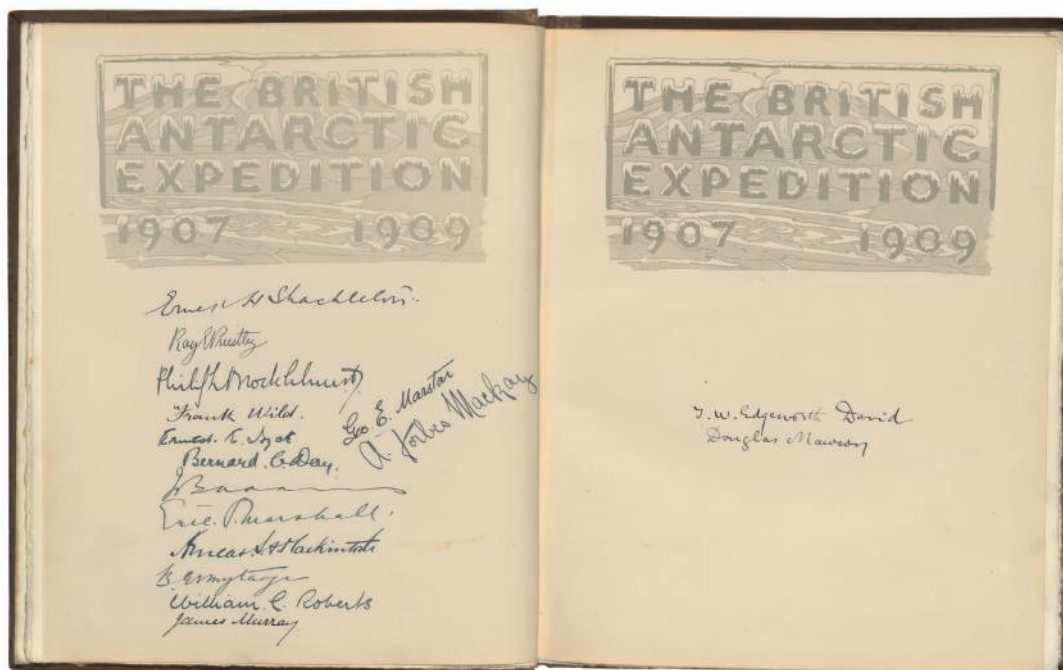 THE BRITISH
ANTARCTIC
EXPEDITION
1907 1909
Ernest H Shackleton.
Raymond E Priestley
Philip L Brocklehurst
Frank Wild.
Ernest. E. Joyce
Bernard. C. Day.
Geo. E. Marston
A. Forbes Mackay
Eric. S. Marshall.
Aeneas. L. A. Mackintosh
B Armytage
William. C. Roberts
James Murray
THE BRITISH
ANTARCTIC
EXPEDITION
1907 1909
T. W. Edgeworth David
Douglas Mawson